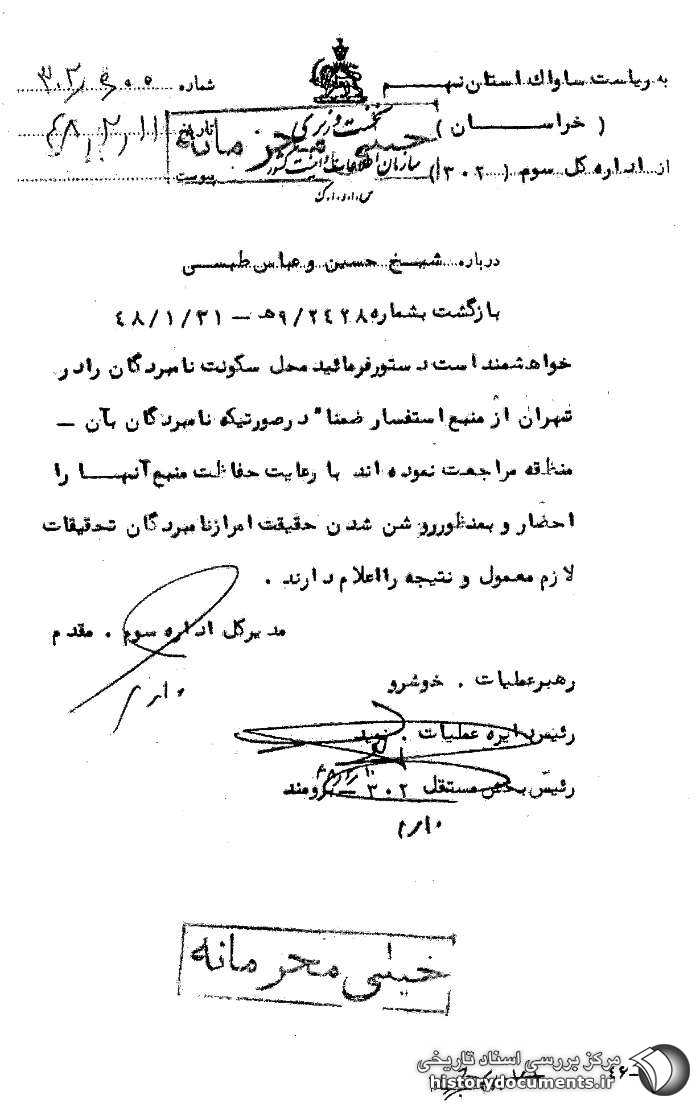 به ریاست ساواک استان نهم
( خراسان )
از اداره کل سوم ( ۳۰۲ )
نخست وزیری
سازمان اطلاعات و امنیت کشور
س.ا.و.ا.ک
شماره
تاریخ ۴۸/۲/۱۱
پیوست
خیلی محرمانه
درباره شیخ حسین و عباس طبسی
بازگشت بشماره ۹/۲۴۲۸ه‍ – ۴۸/۱/۳۱
خواهشمند است دستور فرمائید محل سکونت نامبردگان را در
تهران از منبع استفسار ضمنا" درصورتیکه نامبردگان بآن –
منطقه مراجعت نموده اند با رعایت حفاظت منبع آنها را
احضار و بمنظور روشن شدن حقیقت امر از نامبردگان تحقیقات
لازم معمول و نتیجه را اعلام دارند .
مدیرکل اداره سوم . مقدم
رهبر عملیات . خوشرو
رئیس دایره عملیات . نوید
رئیس بخش مستقل ۳۰۲ – برومند
خیلی محرمانه
مرکز بررسی اسناد تاریخی
historydocuments.ir